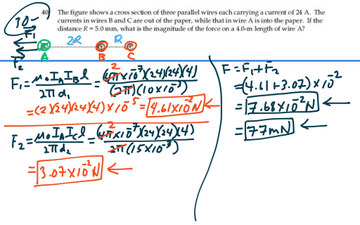 10-
40. The figure shows a cross section of three parallel wires each carrying a current of 24 A. The
currents in wires B and C are out of the paper, while that in wire A is into the paper. If the
distance R = 5.0 mm, what is the magnitude of the force on a 4.0-m length of wire A?
F₁ 2R R
F₂ A B C
F₁ = μ₀ I_A I_B l / 2π d₁ = (4π×10⁻⁷)(24)(24)(4) / (2π)(10×10⁻³)
= (2)(24)(24)(4)×10⁻⁵ = 4.61×10⁻² N
F₂ = μ₀ I_A I_C l / 2π d₂ = (4π×10⁻⁷)(24)(24)(4) / 2π (15×10⁻³)
= 3.07×10⁻² N
F = F₁ + F₂
= (4.61 + 3.07) × 10⁻²
= 7.68×10⁻² N
= 77 mN